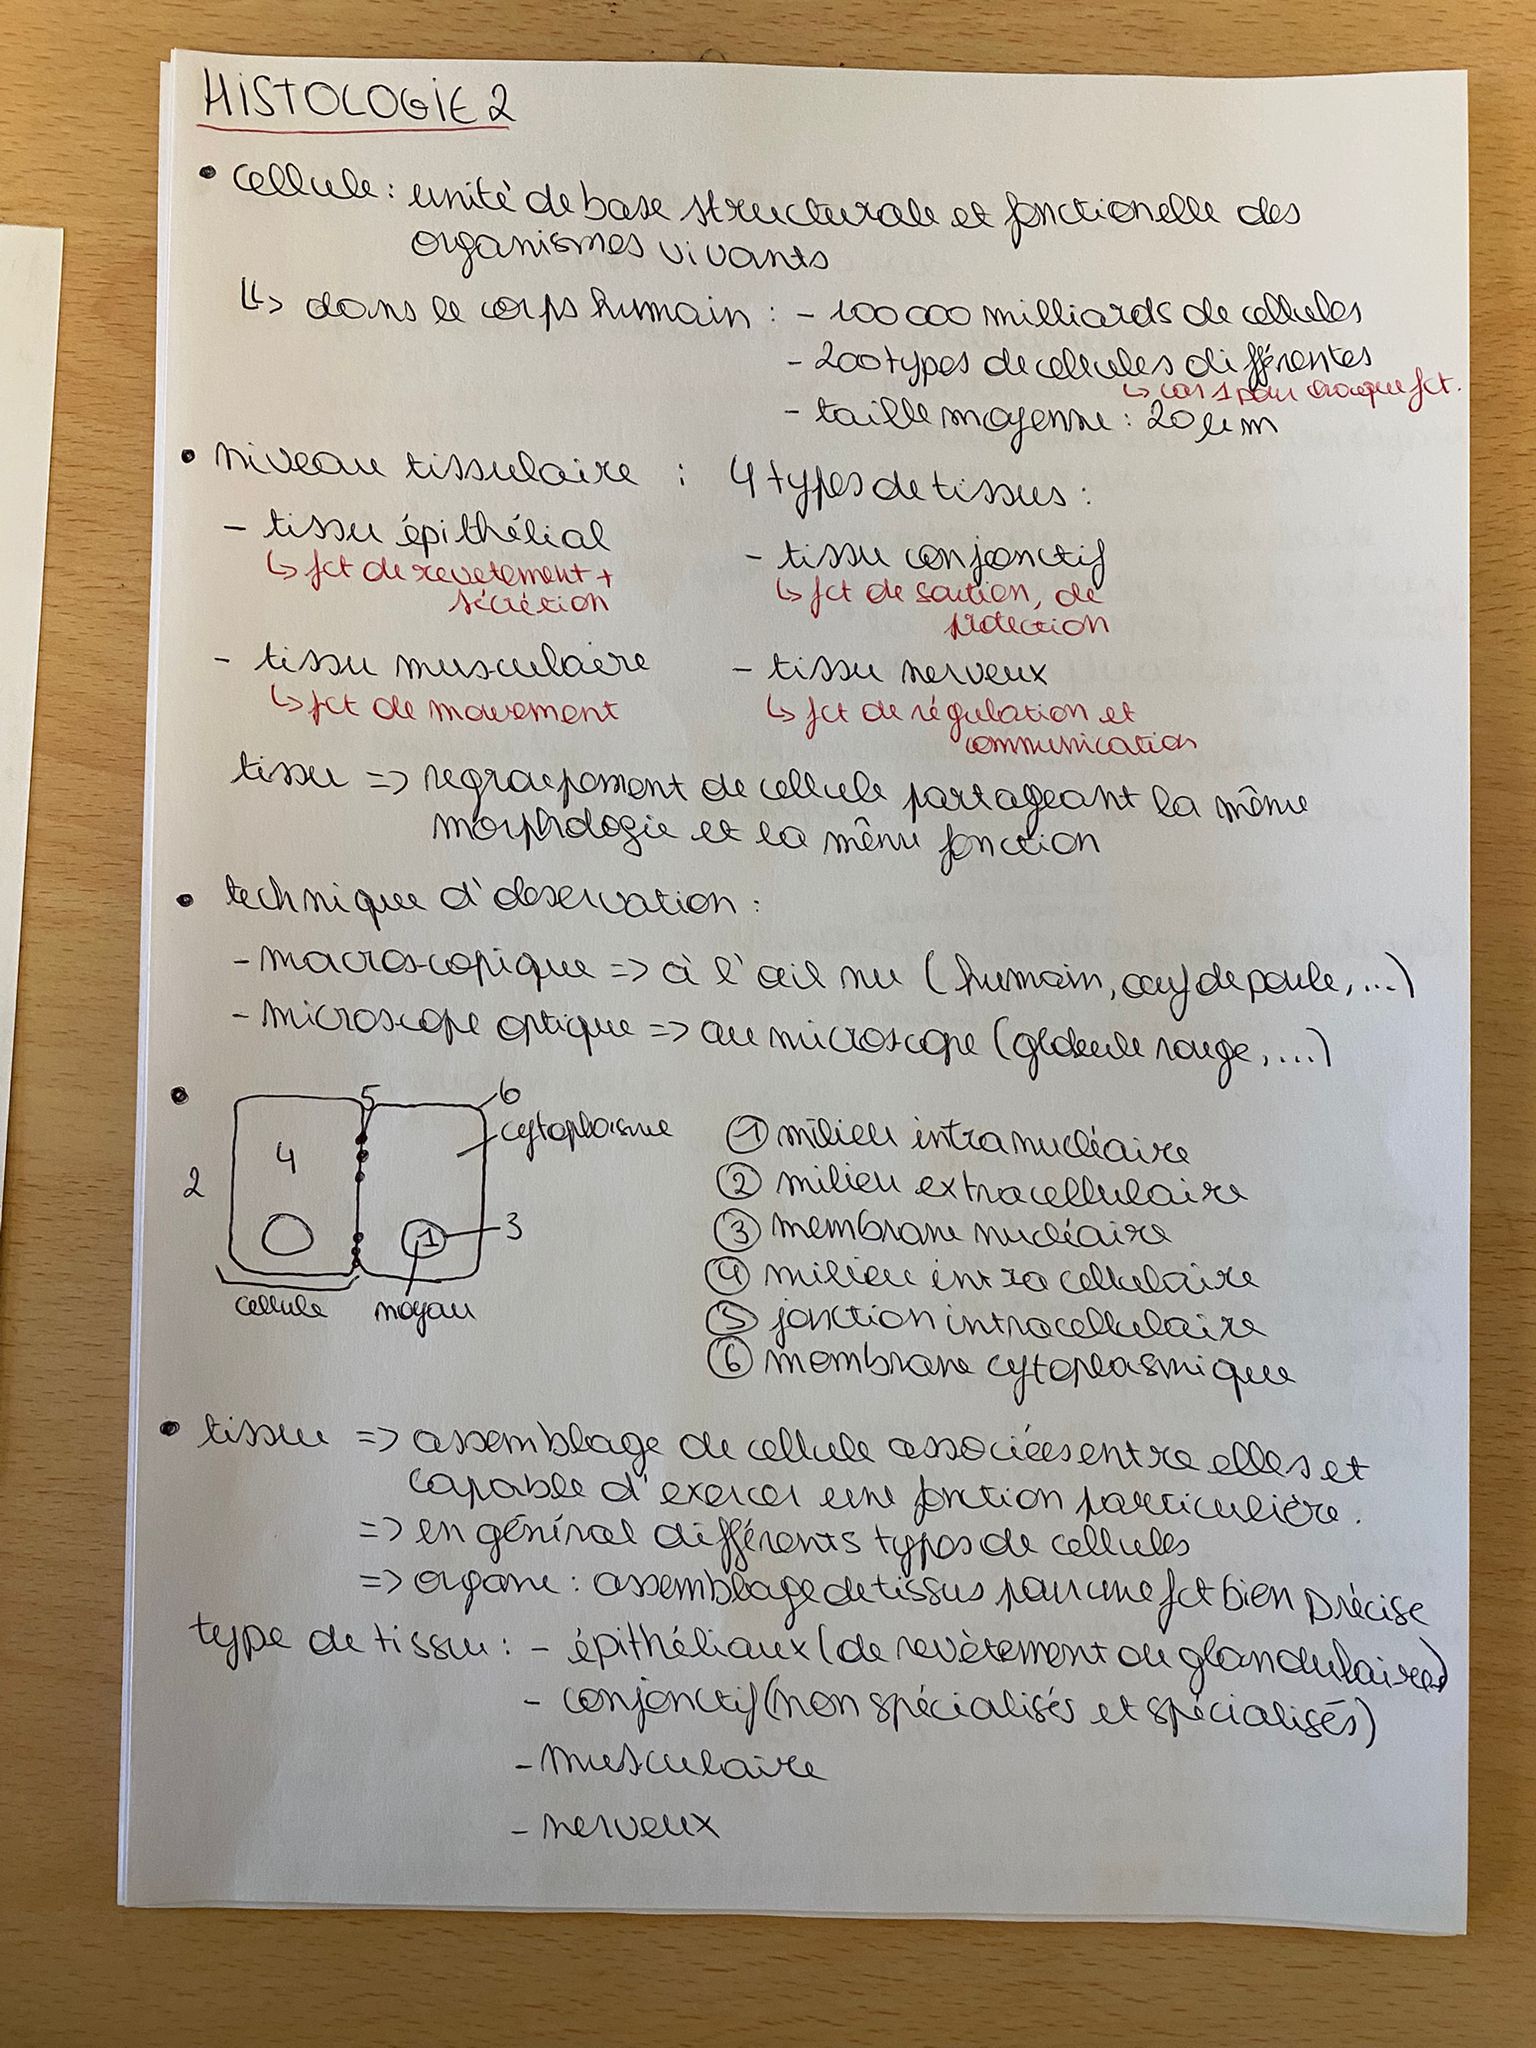 HISTOLOGIE 2
• cellule : unité de base structurale et fonctionelle des
organismes vivants
↳> dans le corps humain : - 100 000 milliards de cellules
- 200 types de cellules différentes
↳ car 1 pour chaque fct.
- taille moyenne : 20 µm
• niveau tissulaire : 4 types de tissus :
- tissu épithélial
↳ fct de revetement +
sécrétion
- tissu conjonctif
↳ fct de soution, de
protection
- tissu musculaire
↳ fct de mouvement
- tissu nerveux
↳ fct de régulation et
communication
tissu => regroupement de cellule partageant la même
morphologie et la même fonction
• technique d'observation :
- macroscopique => à l'œil nu (humain, œuf de poule, ...)
- microscope optique => au microscope (globule rouge, ...)
•
5
6
cytoplasme
4
2
1
3
cellule
noyau
① milieu intranucléaire
② milieu extracellulaire
③ membrane nucléaire
④ milieu intracellulaire
⑤ jonction intracellulaire
⑥ membrane cytoplasmique
• tissu => assemblage de cellule associées entre elles et
capable d'exercer une fonction particulière.
=> en général différents types de cellules
=> organe : assemblage de tissus pour une fct bien précise
type de tissu : - épithéliaux (de revètement ou glandulaires)
- conjonctif (non spécialisés et spécialisés)
- musculaire
- nerveux